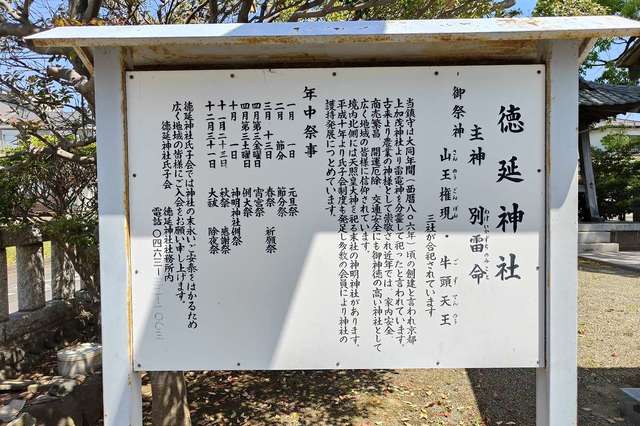 徳延神社
主神 別雷命
わけいかずちのみこと
御祭神 山王権現・牛頭天王
さんのうごんげん ごずてんのう
三社が合祀されています
当鎮守は大同年間(西暦八〇六年)頃の創建と言われ京都
上加茂神社より雷電神を分霊して祀ったと言われています。
古来より農業の神様として崇敬され近年では、家内安全
商売繁昌 開運厄除 交通安全にも御神徳の高い神社として
広く地域の皆様に信仰されています。
境内北側には天照皇大神を祀る末社の神明神社があります。
平成十年より氏子会制度も発足し多数の会員により神社の
護持発展につとめています。
年中祭事
一月一日 元旦祭
二月節分 節分祭
三月十三日 春祭 祈願祭
四月第三金曜日 宵宮祭
四月第三土曜日 例大祭
十月一日 神明神社例祭
十一月二十三日 秋祭 感謝祭
十二月三十一日 大祓 除夜祭
徳延神社氏子会では神社の末永い、ご安泰をはかるため
広く地域の皆様にご入会をお願い申し上げます。
徳延神社氏子会 徳延神社社務所内
電話〇四六三ー